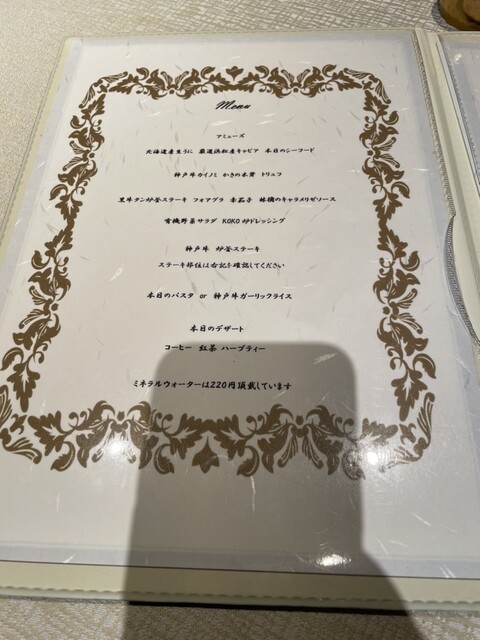 Menu
アミューズ
北海道産生うに 厳選浜松産キャビア 本日のシーフード
神戸牛カイノミ かきの木茸 トリュフ
黒牛タン炉釜ステーキ フォアグラ 赤茄子 林檎のキャラメリゼソース
有機野菜サラダ KOKO炉ドレッシング
神戸牛 炉釜ステーキ
ステーキ部位は右記を確認してください
本日のパスタ or 神戸牛ガーリックライス
本日のデザート
コーヒー 紅茶 ハーブティー
ミネラルウォーターは220円頂戴しています